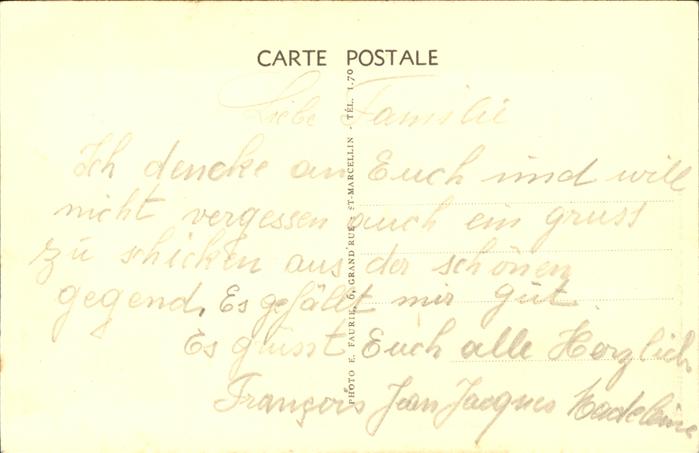 CARTE POSTALE
Liebe Familie
Ich dencke an Euch und will
nicht vergessen auch ein gruss
zu schicken aus der schönen
gegend. Es gefällt mir gut.
Es grüsst Euch alle Herzlich
François Jean Jacques Madeleine
PHOTO E. FAURIE, 6, GRAND'RUE - ST-MARCELLIN - TÉL. 1-70